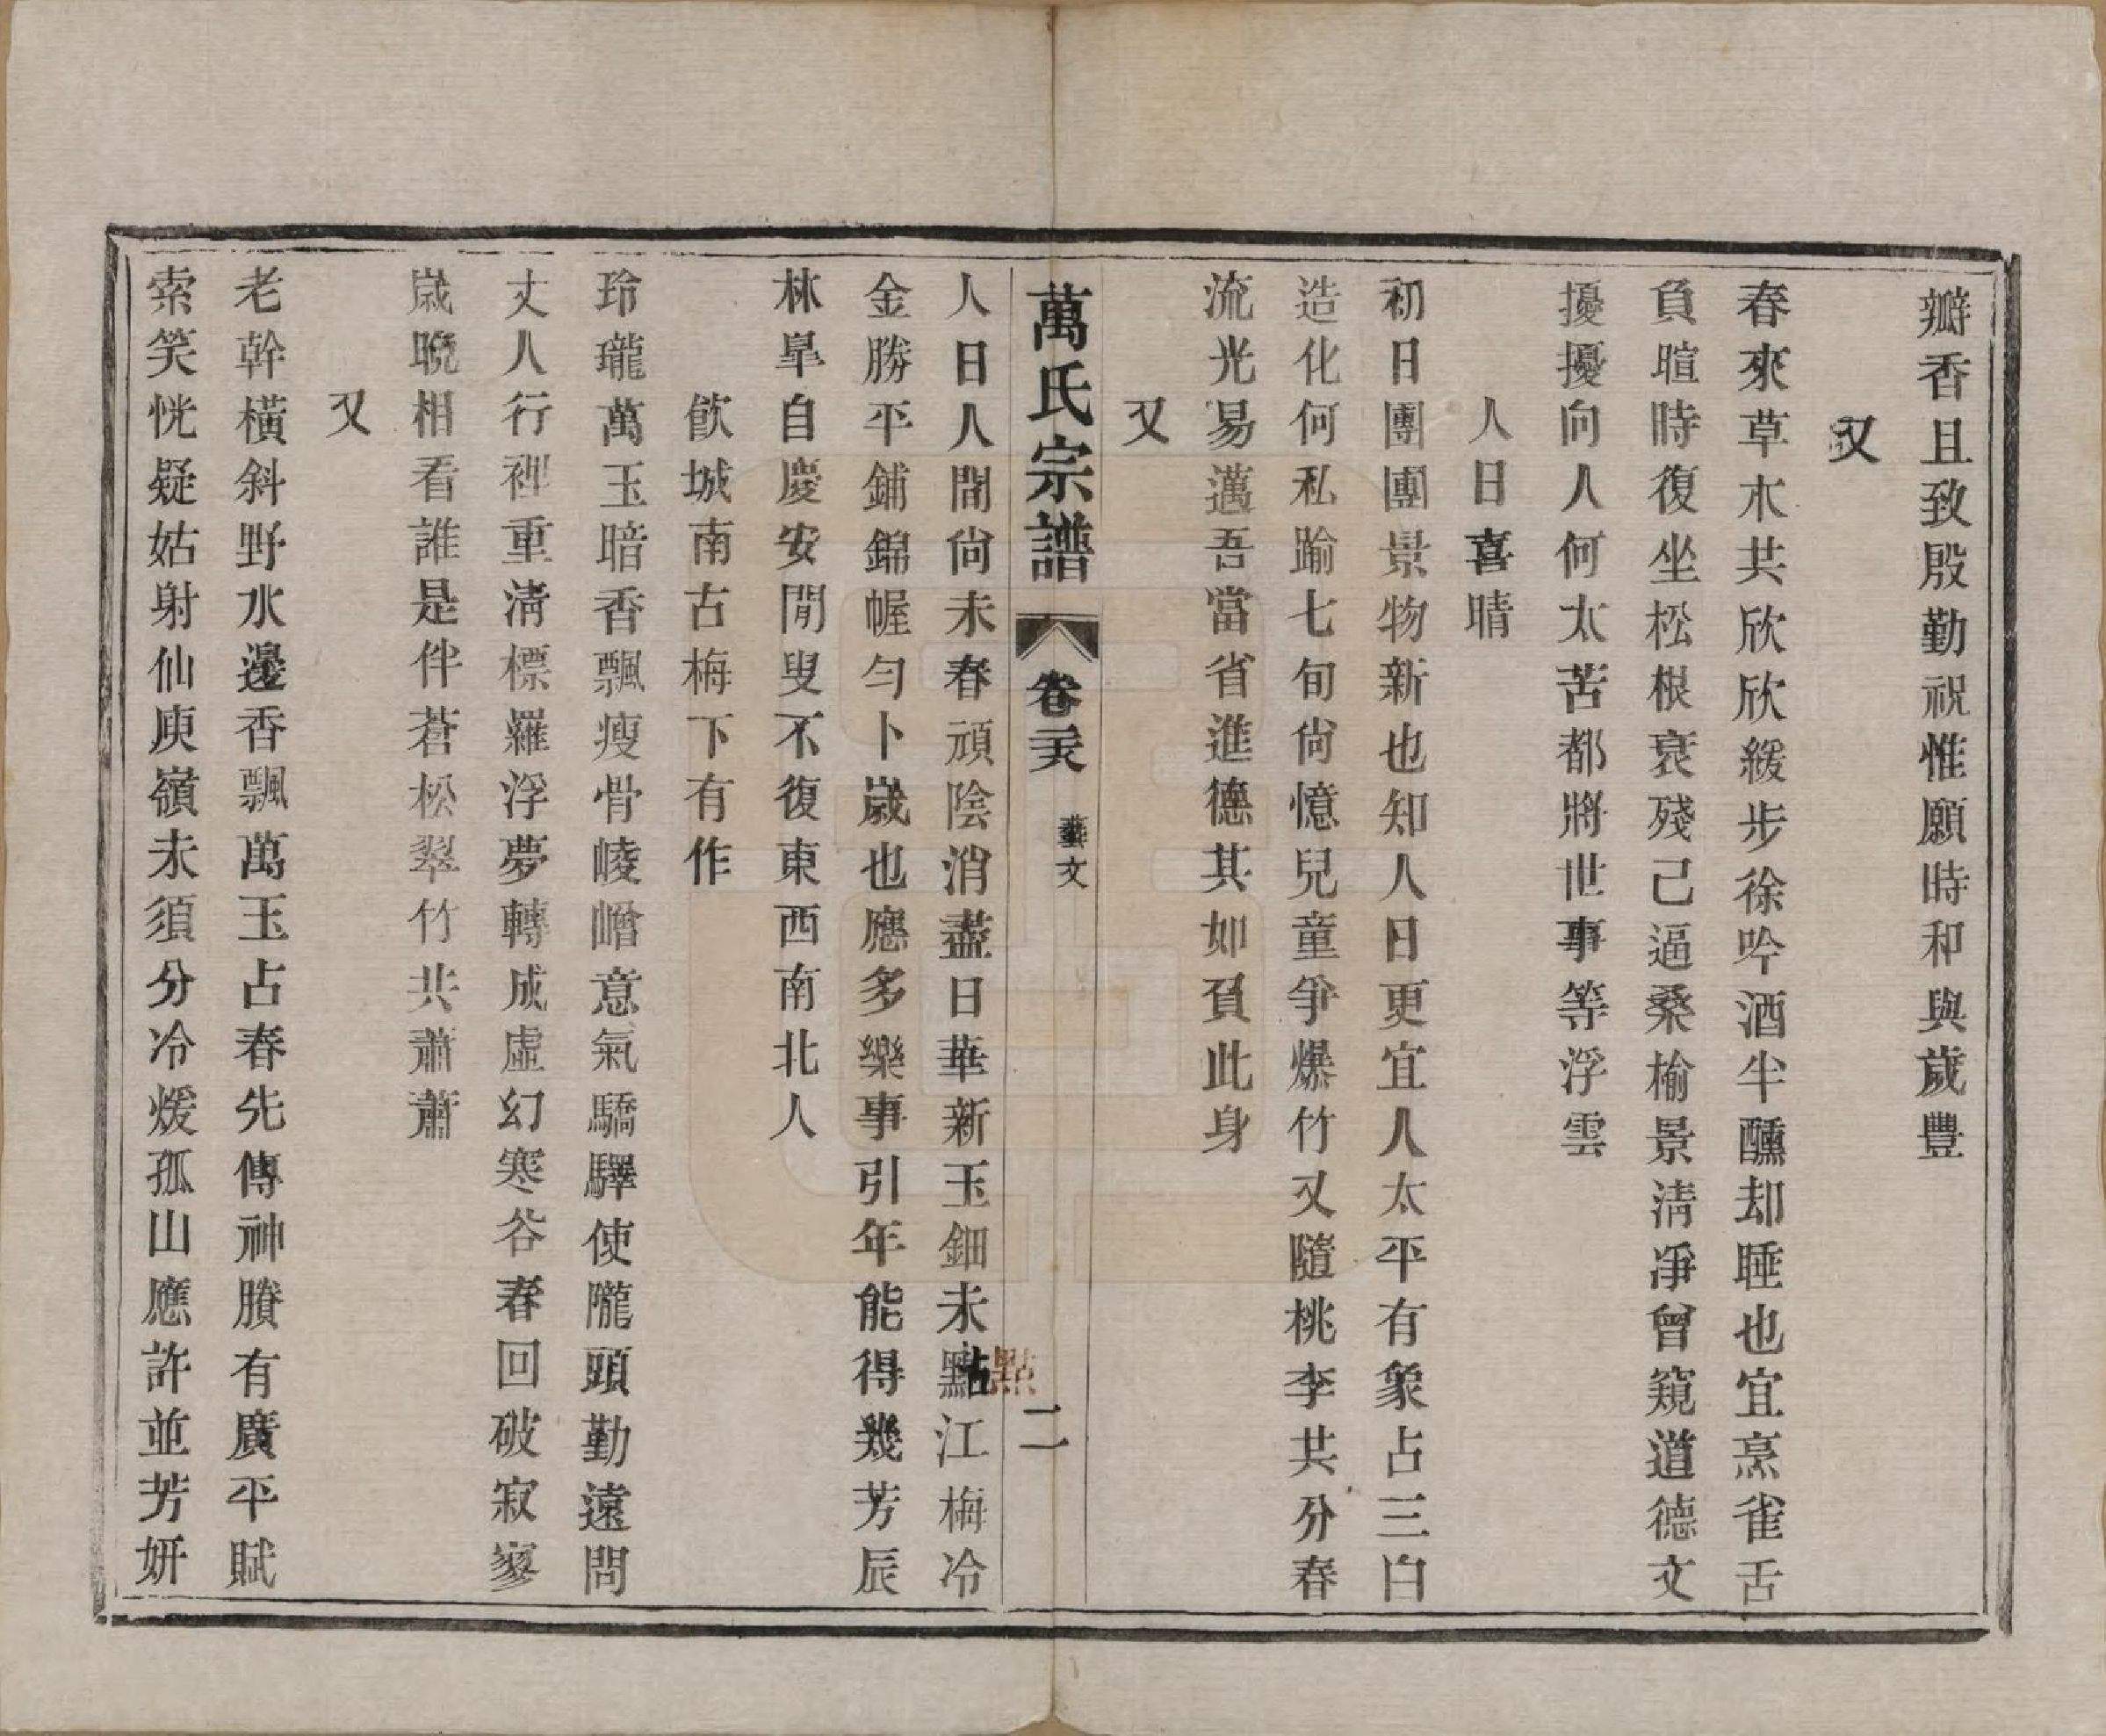 瓣香且致殷勤祝惟願時和與歲豐
又
春來草木共欣欣緩步徐吟酒半醺却睡也宜烹雀舌
負暄時復坐松根衰殘已逼桑榆景清凈曾窺道德文
擾擾向人何太苦都將世事等浮雲
人日喜晴
初日團團景物新也知人日更宜人太平有象占三白
造化何私踰七旬尙憶兒童爭爆竹又隨桃李共分春
流光易邁吾當省進德其如負此身
又
萬氏宗譜
卷
藝文
二
人日人間尙未春頑陰消盡日華新玉鈿未點江梅冷
點
金勝平鋪錦幄勻卜歲也應多樂事引年能得幾芳辰
林皐自慶安閒叟不復東西南北人
飮城南古梅下有作
玲瓏萬玉暗香飄瘦骨崚嶒意氣驕驛使隴頭勤遠問
丈人行裡重清標羅浮夢轉成虛幻寒谷春回破寂寥
歲晚相看誰是伴蒼松翠竹共蕭蕭
又
老幹橫斜野水邊香飄萬玉占春先傳神賸有廣平賦
索笑恍疑姑射仙庾嶺未須分冷煖孤山應許並芳妍